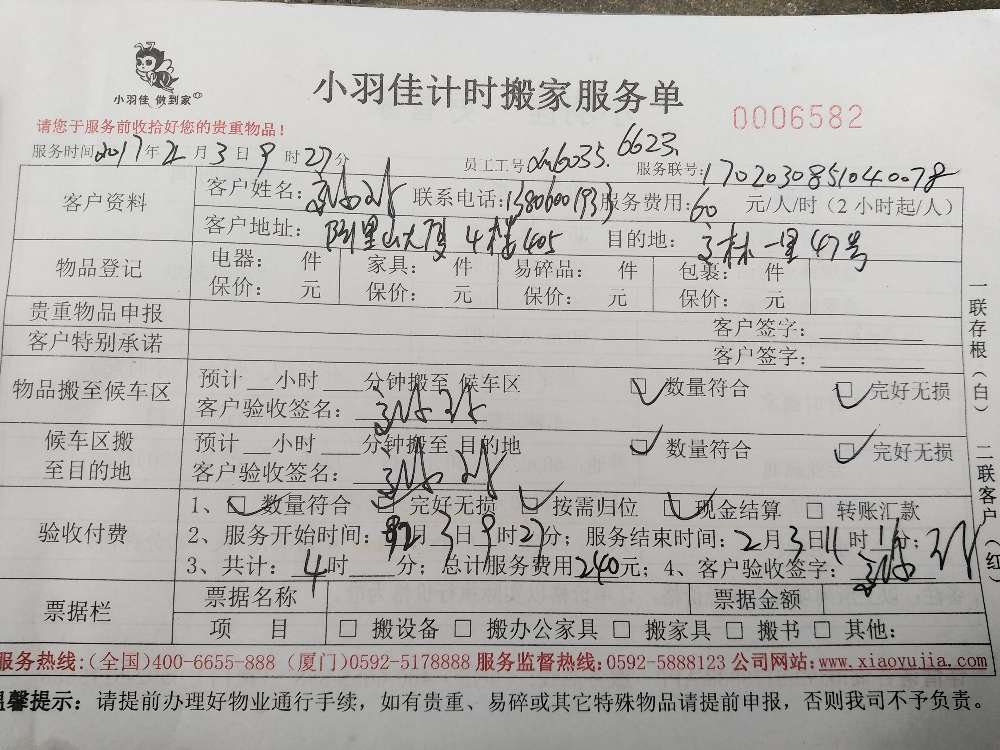 小羽佳 做到家
小羽佳计时搬家服务单
0006582
请您于服务前收拾好您的贵重物品！
服务时间2017年2月3日9时27分 员工工号 6035. 6623. 服务联号:1702030851040078
客户资料
客户姓名: 联系电话:13806001933 服务费用:60 元/人/时（2 小时起/人）
客户地址: 阿里山大厦4楼405 目的地: 林一里47号
物品登记
电器： 件 家具： 件 易碎品： 件 包裹： 件
保价： 元 保价： 元 保价： 元 保价： 元
贵重物品申报 客户签字:
客户特别承诺 客户签字:
物品搬至候车区
预计 小时 分钟搬至 候车区 ☑ 数量符合 ☑ 完好无损
客户验收签名:
候车区搬
至目的地
预计 小时 分钟搬至 目的地 ☑ 数量符合 ☑ 完好无损
客户验收签名:
验收付费
1、☑ 数量符合 ☑ 完好无损 ☑ 按需归位 ☑ 现金结算 □ 转账汇款
2、服务开始时间: 2月3日9时27分；服务结束时间: 2月3日11时1分；
3、共计: 4时 分；总计服务费用240元；4、客户验收签字:
票据栏
票据名称 票据金额
项 目 □ 搬设备 □ 搬办公家具 □ 搬家具 □ 搬书 □ 其他:
一联存根（白） 二联客户（红）
服务热线:(全国)400-6655-888 (厦门)0592-5178888 服务监督热线:0592-5888123 公司网站:www.xiaoyujia.com
温馨提示: 请提前办理好物业通行手续，如有贵重、易碎或其它特殊物品请提前申报，否则我司不予负责。